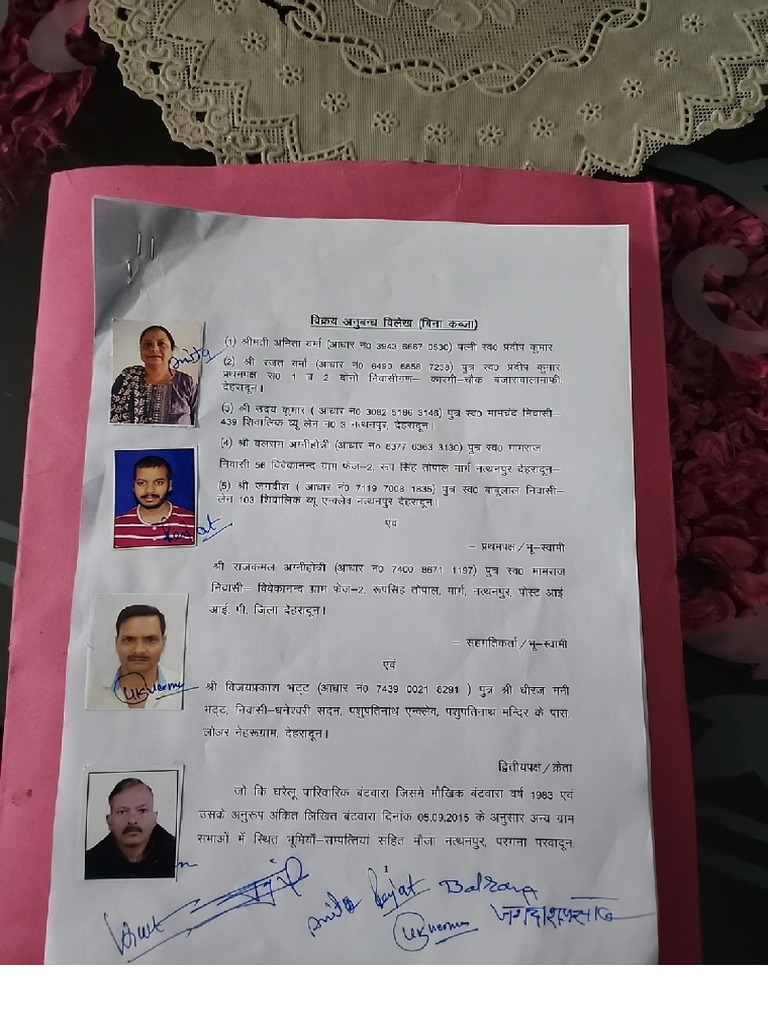 विक्रय अनुबन्ध विलेख (बिना कब्जा)
(1) श्रीमती अनिता वर्मा (आधार न0 3943 6667 0530) पत्नी स्व0 प्रदीप कुमार
(2) श्री रजत वर्मा (आधार न0 6490 6856 7238) पुत्र स्व0 प्रदीप कुमार,
प्रथमपक्ष स0 1 व 2 दोनो निवासीगण– कारगी–चौक बंजारावालामाफी,
देहरादून।
(3) श्री उदय कुमार ( आधार न0 3082 5196 3148) पुत्र स्व0 मामचंद निवासी–
439 शिवालिक व्यू लेन न0 3 नत्थनपुर, देहरादून।
(4) श्री बलराम अग्नीहोत्री (आधार न0 8377 6363 3130) पुत्र स्व0 मामराज
निवासी 56 विवेकानन्द ग्राम फेज–2, रूप सिंह तोपाल मार्ग नत्थनपुर देहरादून–
(5) श्री जगदीश ( आधार न0 7119 7008 1835) पुत्र स्व0 बाबूलाल निवासी–
लेन 103 शिवालिक व्यू एन्क्लेव नत्थनपुर देहरादून।
एंव
– प्रथमपक्ष/भू–स्वामी
श्री राजकमल अग्नीहोत्री (आधार न0 7400 8671 1197) पुत्र स्व0 मामराज
निवासी– विवेकानन्द ग्राम फेज–2, रूपसिंह तोपाल, मार्ग, नत्थनपुर, पोस्ट आई
आई. पी. जिला देहरादून।
– सहमतिकर्ता/भू–स्वामी
एवं
श्री विजयप्रकाश भट्ट (आधार न0 7439 0021 8291 ) पुत्र श्री धीरज मनी
भट्ट, निवासी–धनेश्वरी सदन, पशुपतिनाथ एन्क्लेव, पशुपतिनाथ मन्दिर के पास,
लोअर नेहरूग्राम, देहरादून।
द्वितीयपक्ष/क्रेता
जो कि घरेलू पारिवारिक बंटवारा जिसमे मौखिक बंटवारा वर्ष 1983 एवं
उसके अनुरूप अंकित लिखित बंटवारा दिनांक 05.09.2015 के अनुसार अन्य ग्राम
सभाओं में स्थित भूमियों–सम्पत्तियां सहित मौजा नत्थनपुर, परगना परवादून,
1
Anita Rajat Balram
UKverma जगदीश प्रसाद